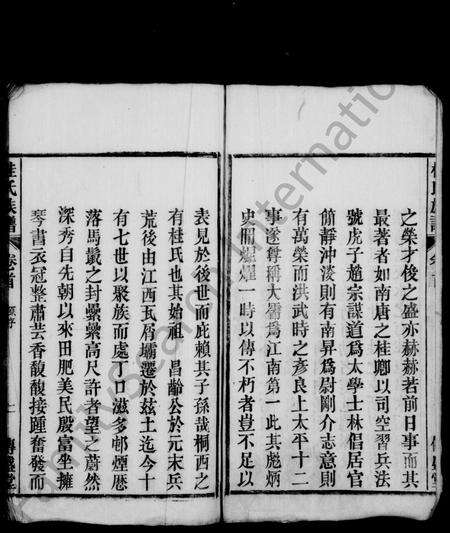 之榮才俊之盛亦赫赫著前日事而其
最著者如南唐之桂卿以司空習兵法
號虎子趙宗謀道爲太學士林倡居官
節靜沖淡則有南昇爲尉剛介志意則
有萬榮而洪武時之彥良上太平十二
事遂尊稱大儒爲江南第一此其彪炳
史冊煌煌一時以傳不朽者豈不足以
表見於後世而庇賴其子孫哉桐西之
有桂氏也其始祖昌齡公於元末兵
荒後由江西瓦屑壩遷於茲土迄今十
有七世以聚族而處丁口滋多邨煙
落馬鬣之封纍纍高尺許者望之蔚然
深秀自先朝以來田肥美民殷富坐擁
琴書衣冠整肅芸香馥馥接踵奮發而
桂氏族譜 卷首